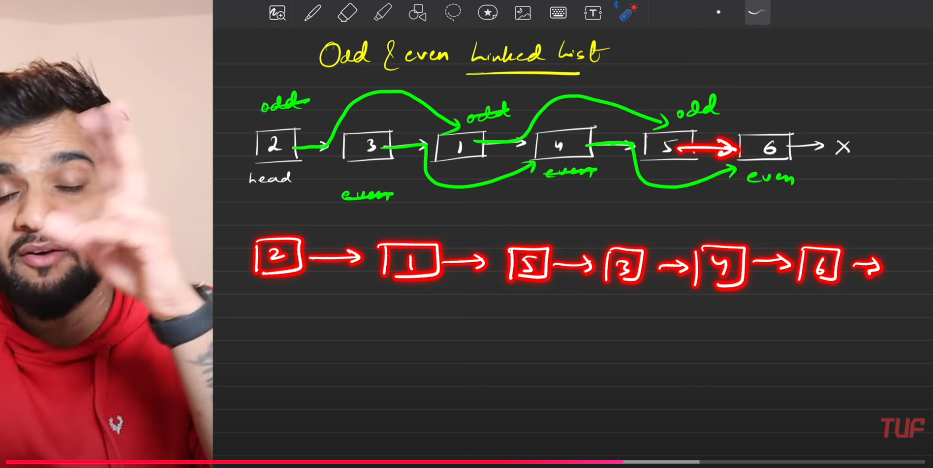 Odd & even Linked List
odd odd odd
2 3 1 4 5 6 X
head even even even
2 1 5 3 4 6
TUF
T